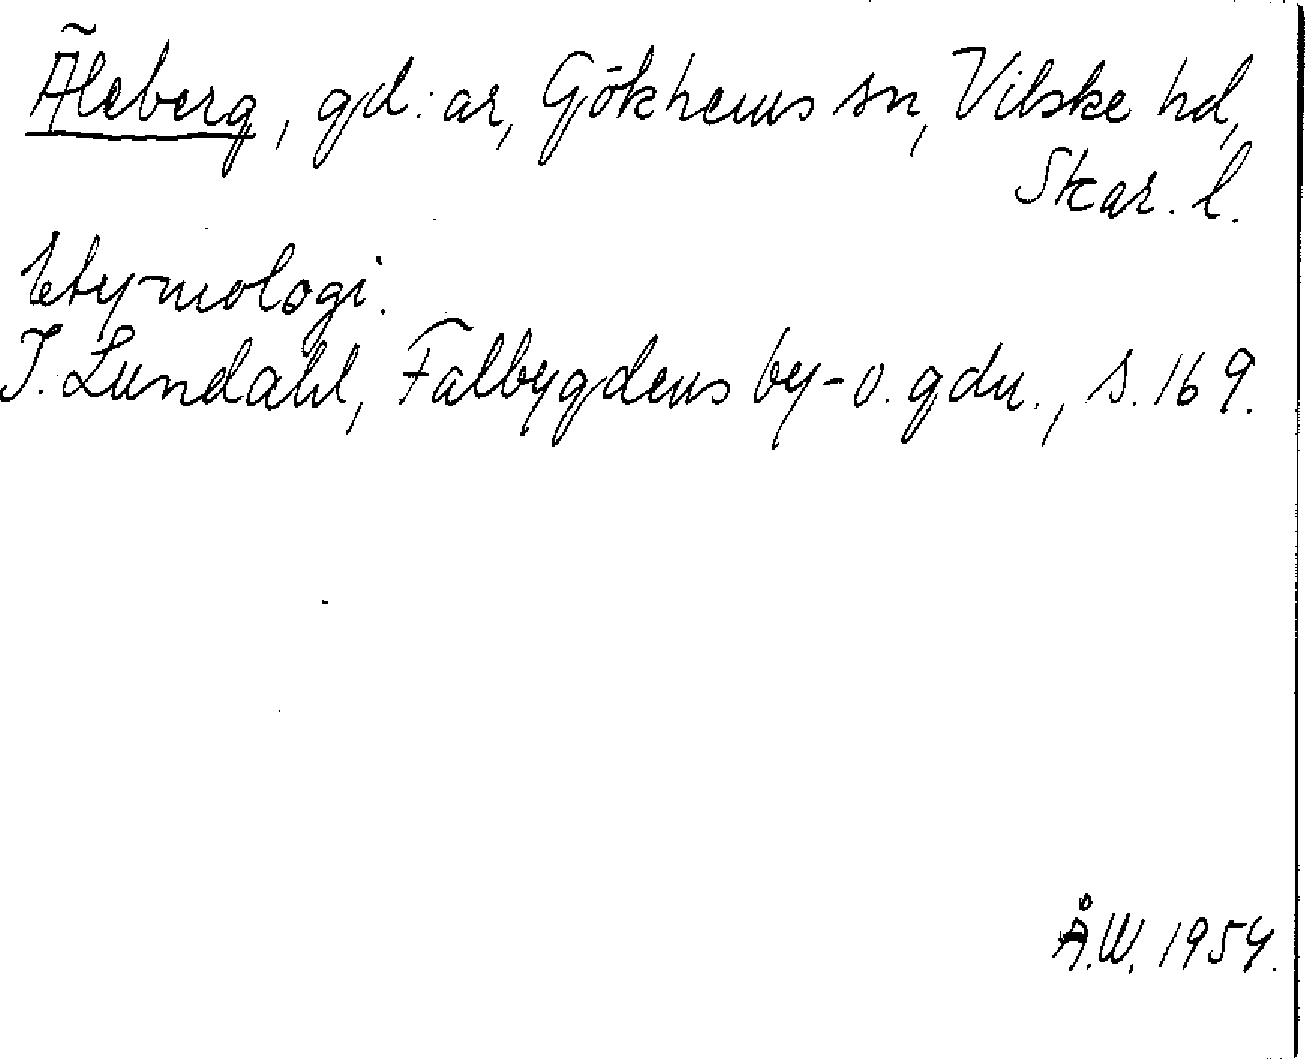 Äleberg, gd:ar, Gökhems sn, Vilske hd,
Skar. l.
Etymologi.
I. Lundahl, Falbygdens by- o. gdn., s. 169.
Å.W. 1954.